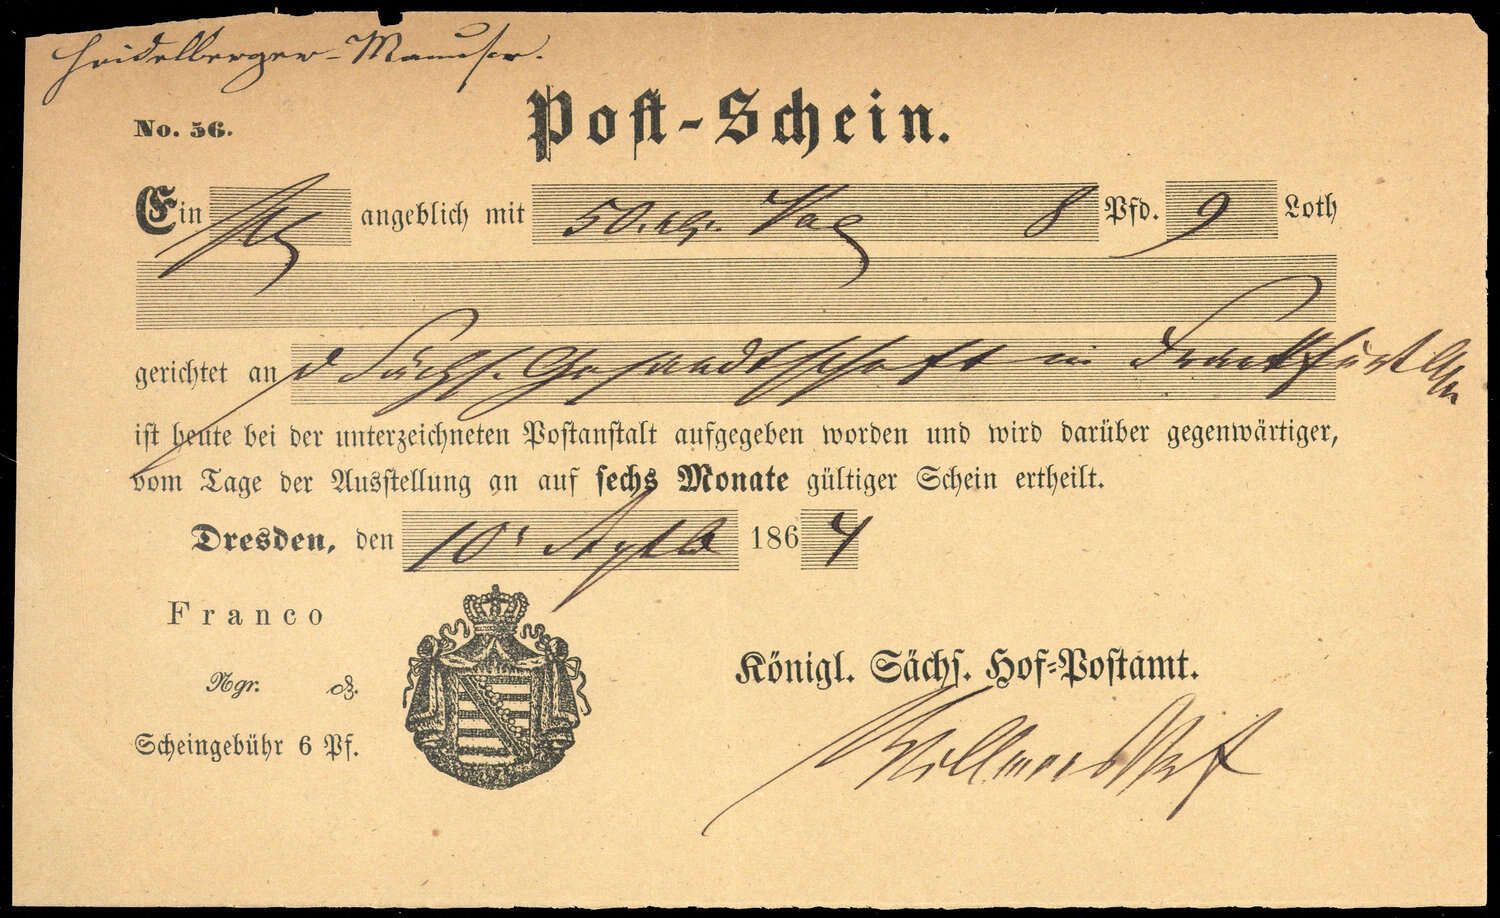 Heidelberger-Manuscr.
No. 56.
Post-Schein.
Ein angeblich mit 50. 8 Pfd. 9 Loth
gerichtet an d Sächs. Gesandtschaft in Frankfurt
ist heute bei der unterzeichneten Postanstalt aufgegeben worden und wird darüber gegenwärtiger,
vom Tage der Ausstellung an auf sechs Monate gültiger Schein ertheilt.
Dresden, den 10' Septb 1864
Franco
Ngr. ₰.
Königl. Sächs. Hof-Postamt.
Scheingebühr 6 Pf.